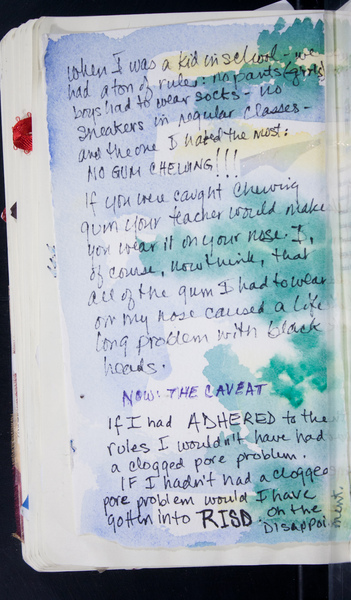 When I was a kid in school - we
had a ton of rules: no pants (girls)
boys had to wear socks - no
sneakers in regular classes -
and the one I hated the most:
NO GUM CHEWING!!!
If you were caught chewing
gum your teacher would make
you wear it on your nose. I,
of course, now think, that
all of the gum I had to wear
on my nose caused a life
long problem with black
heads.
NOW: THE CAVEAT
If I had ADHERED to the
rules I wouldn't have had
a clogged pore problem.
IF I hadn't had a clogged
pore problem would I have
gotten into RISD. Oh the
Disappointment.